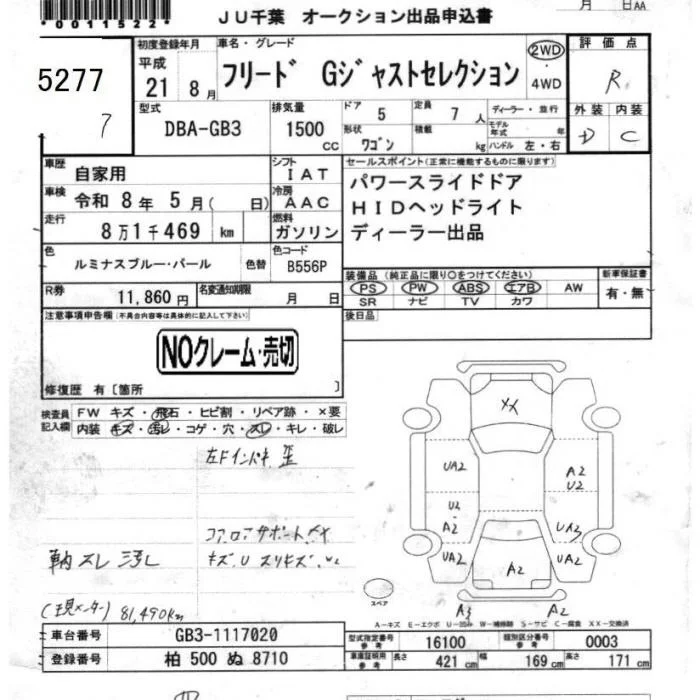 *0011522*
JU千葉 オークション出品申込書
月 日AA
5277
7
初度登録年月
平成
21 8月
車名・グレード
フリード Gジャストセレクション
2WD
・
4WD
評価点
R
型式
DBA-GB3
排気量
1500
CC
ドア 5
定員 7 人
ディーラー・並行
形状 ワゴン
積載 kg
モデル年式 年
ハンドル 左・右
外装 内装
D C
車歴 自家用
シフト IAT
車検 令和 8年 5月( 日)
冷房 AAC
走行 8万1千469 km
燃料 ガソリン
色 ルミナスブルー・パール
色替
色コード B556P
R券 11,860円
名変通知期限 月 日
セールスポイント(正常に機能するものに限ります)
パワースライドドア
HIDヘッドライト
ディーラー出品
装備品 (純正品に限り○をつけてください)
PS PW ABS エアB AW
SR ナビ TV カワ
新車保証書
有・無
後日品
注意事項申告欄(不具合内容等は具体的に記入して下さい)
NOクレーム・売切
修復歴 有〔箇所 〕
検査員
記入欄
FW キズ・飛石・ヒビ割・リペア跡・×要
内装 キズ・汚レ・コゲ・穴・スレ・キレ・破レ
左Fインパネ 歪
コアロアサポート
キズ.U スリキズ.
スレ 汚レ
(現メーター) 81,490km
XX
UA2
A2
U2
U2
A2
UA3
UA2
A2
UA2
A3
A2
スペア
A-キズ E-エクボ U-凹み W-補修跡 S-サビ C-腐食 XX-交換済
車台番号 GB3-1117020
登録番号 柏 500 ぬ 8710
型式指定番号 参考 16100
類別区分番号 参考 0003
車庫証明用 参考 長さ 421 cm 幅 169 cm 高さ 171 cm